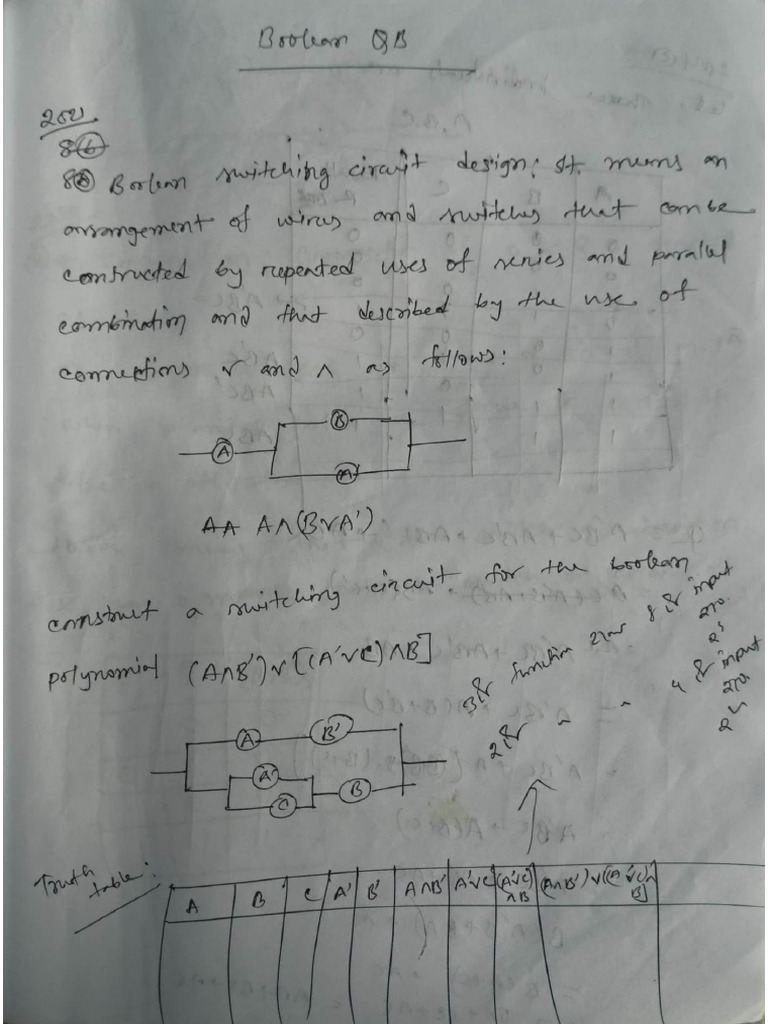 Boolean QB
8(b)
8(a) Boolean switching circuit design: It means an
arrangement of wires and switches that can be
constructed by repeated uses of series and parallel
combination and that described by the use of
connections v and ∧ as follows:
B
A
A'
AA A∧(B∨A')
construct a switching circuit for the boolean
polynomial (A∧B')∨[(A'∨C)∧B]
3 function 8 input
2 4 input
A B'
A'
C B
Truth table:
A B C A' B' A∧B' A'∨C (A'∨C)∧B (A∧B')∨((A'∨C)∧B]